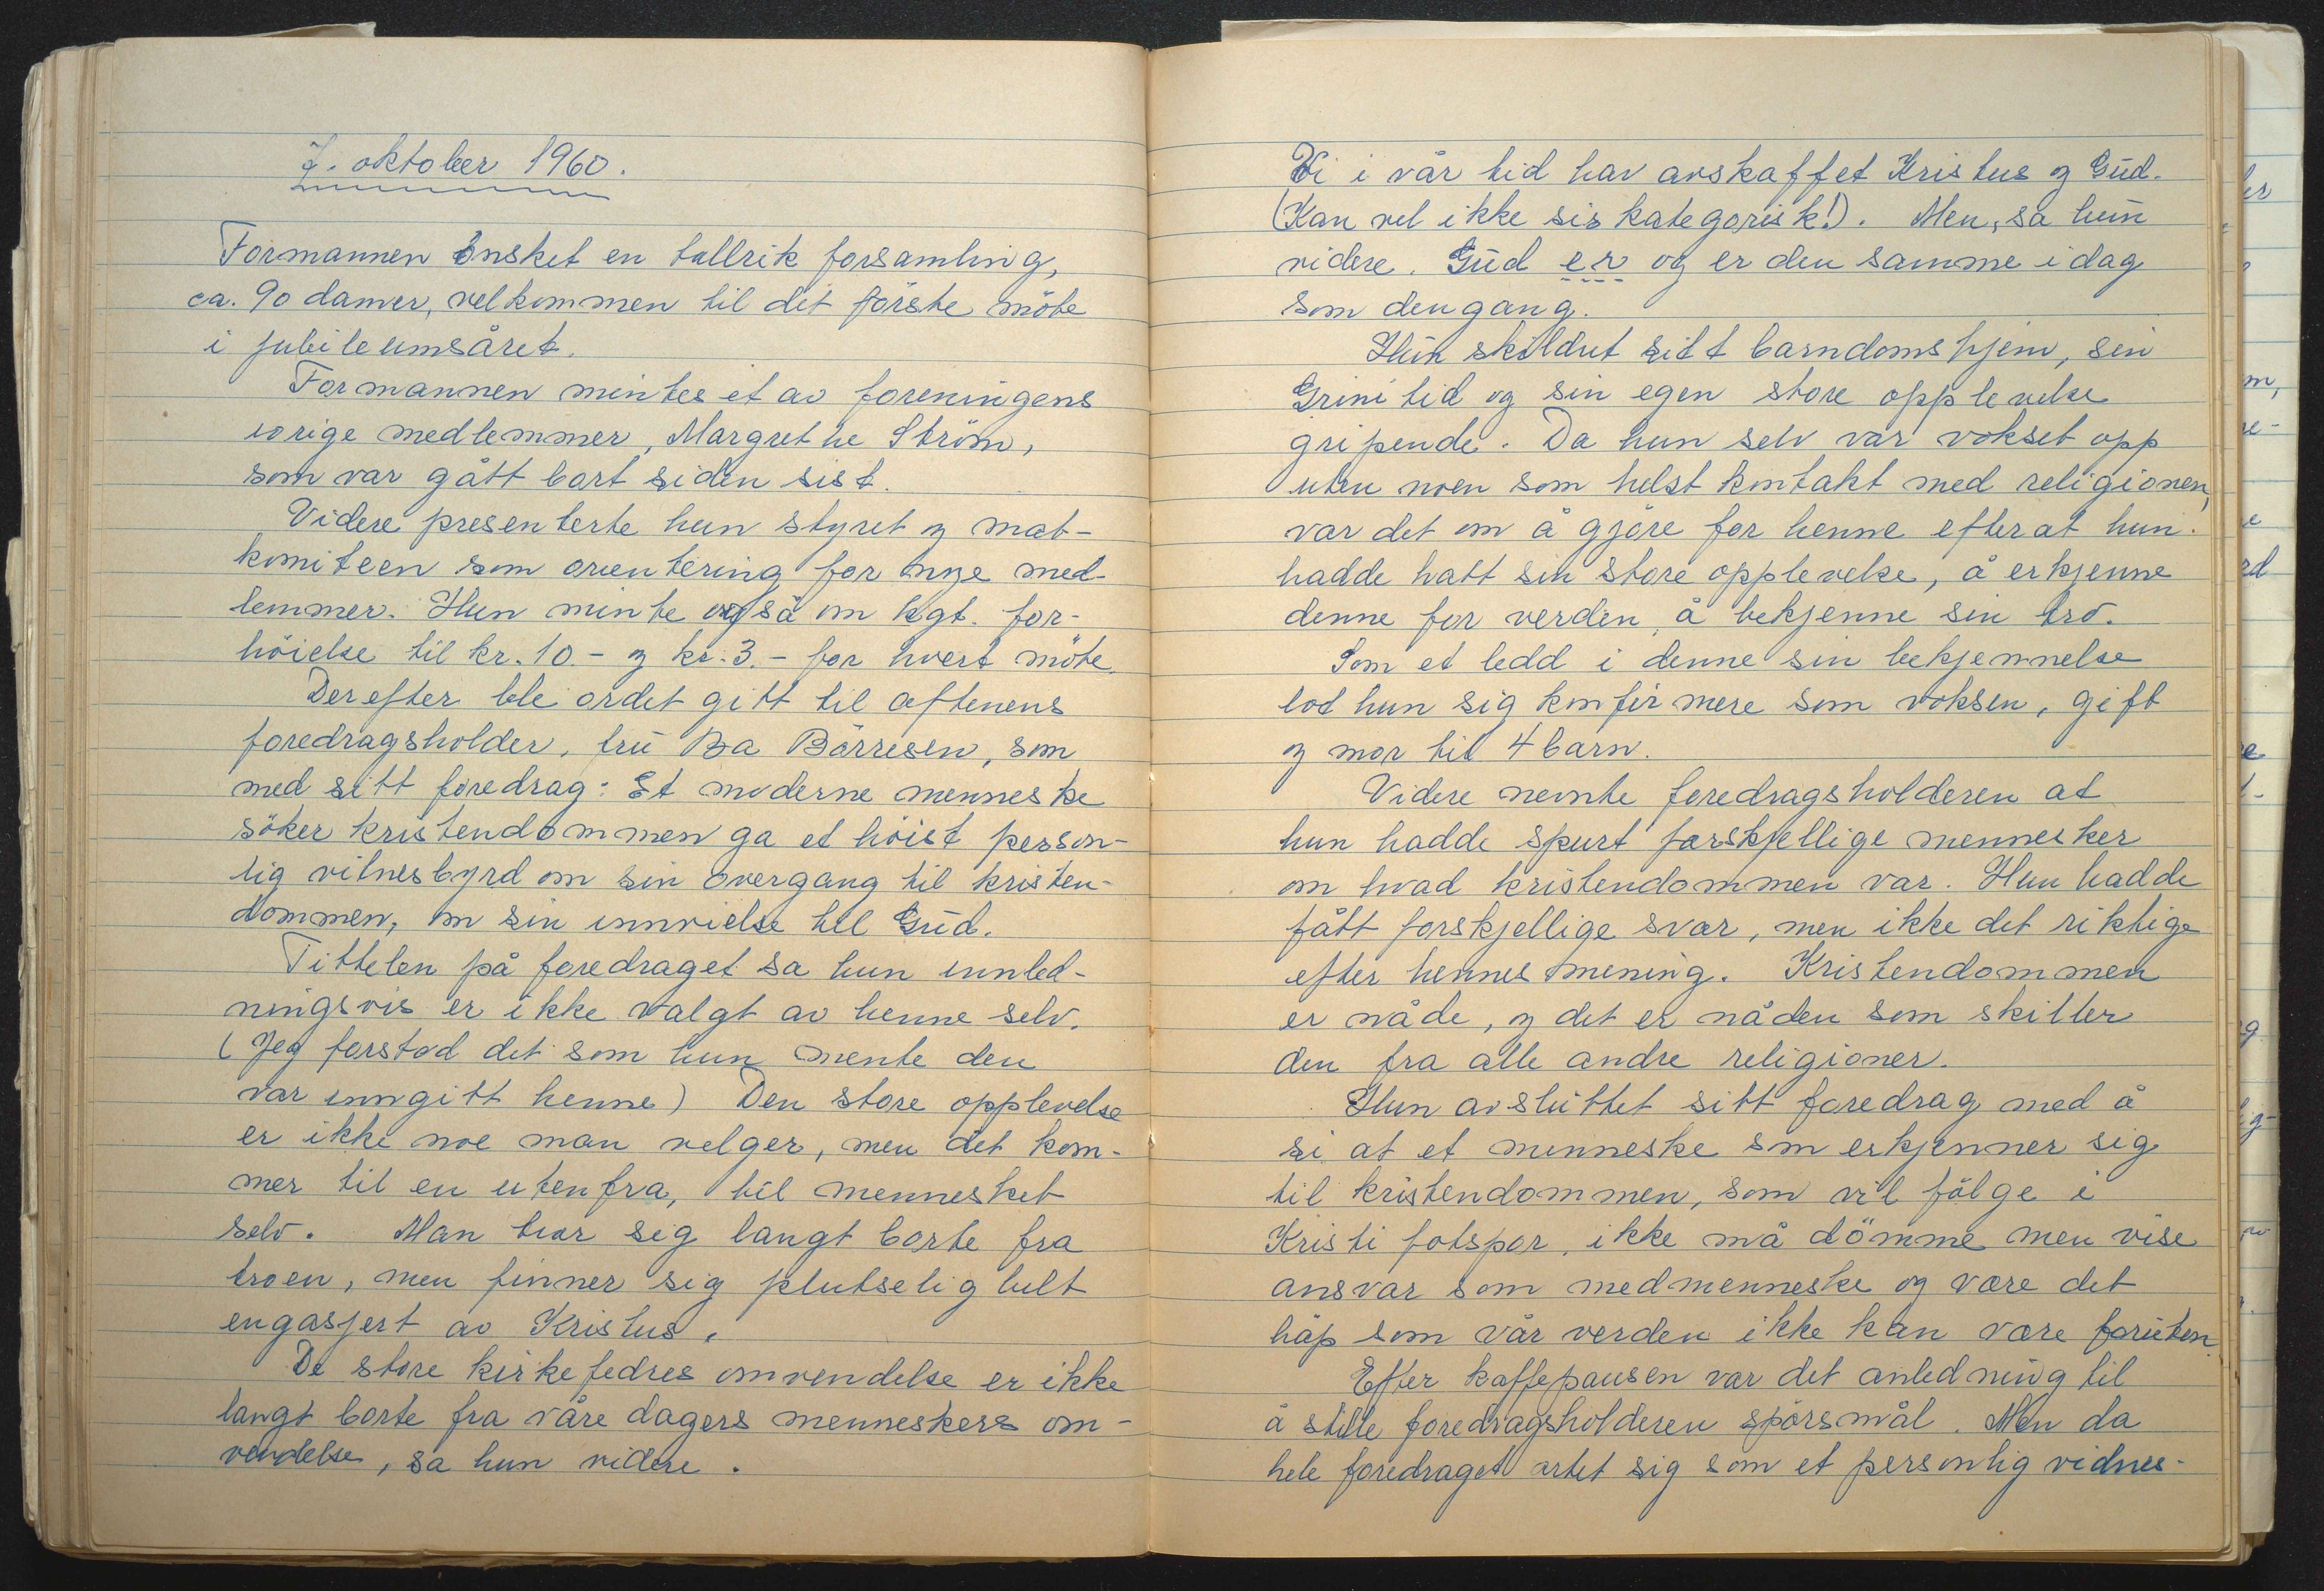 7. oktober 1960.
Formannen önsket en tallrik forsamling,
ca. 90 damer, velkommen til det förste möte
i jubileumsåret.
Formannen mintes et av foreningens
ivrige medlemmer, Margrethe Ström,
som var gått bort siden sist.
Videre presenterte hun styret og mat-
komiteen som orientering for nye med-
lemmer. Hun minte også om kgt. for-
höielse til kr. 10.- og kr. 3.- for hvert möte.
Derefter ble ordet gitt til aftenens
foredragsholder, fru Ba Börresen, som
med sitt foredrag: Et moderne menneske
söker kristendommen ga et höist person-
lig vitnesbyrd om sin overgang til kristen-
dommen, om sin innvielse til Gud.
Tittelen på foredraget sa hun innled-
ningsvis er ikke valgt av henne selv.
(Jeg forstod det som hun mente den
var inngitt henne) Den store opplevelse
er ikke noe man velger, men det kom-
mer til en utenfra, til mennesket
selv. Man tror sig langt borte fra
troen, men finner sig plutselig helt
engasjert av Kristus.
De store kirkefedres omvendelse er ikke
langt borte fra våre dagers menneskers om-
vendelse, sa hun videre.
Vi i vår tid har avskaffet Kristus og Gud.
(Kan vel ikke sis kategorisk!). Men, sa hun
videre. Gud er og er den samme i dag
som dengang.
Hun skildret sitt barndomshjem, sin
Grini tid og sin egen store opplevelse
gripende. Da hun selv var vokset opp
uten noen som helst kontakt med religionen,
var det om å gjöre for henne efter at hun
hadde hatt sin store opplevelse, å erkjenne
denne for verden, å bekjenne sin tro.
Som et ledd i denne sin bekjennelse
lot hun sig konfirmere som voksen, gift
og mor til 4 barn.
Videre nevnte foredragsholderen at
hun hadde spurt forskjellige mennesker
om hvad kristendommen var. Hun hadde
fått forskjellige svar, men ikke det riktige
efter hennes mening. Kristendommen
er nåde, og det er nåden som skiller
den fra alle andre religioner.
Hun avsluttet sitt foredrag med å
si at et menneske som erkjenner sig
til kristendommen, som vil fölge i
Kristi fotspor, ikke må dömme men vise
ansvar som medmenneske og være det
håp som vår verden ikke kan være foruten
Efter kaffepausen var det anledning til
å stille foredragsholderen spörsmål. Men da
hele foredraget artet sig som et personlig vidnes-